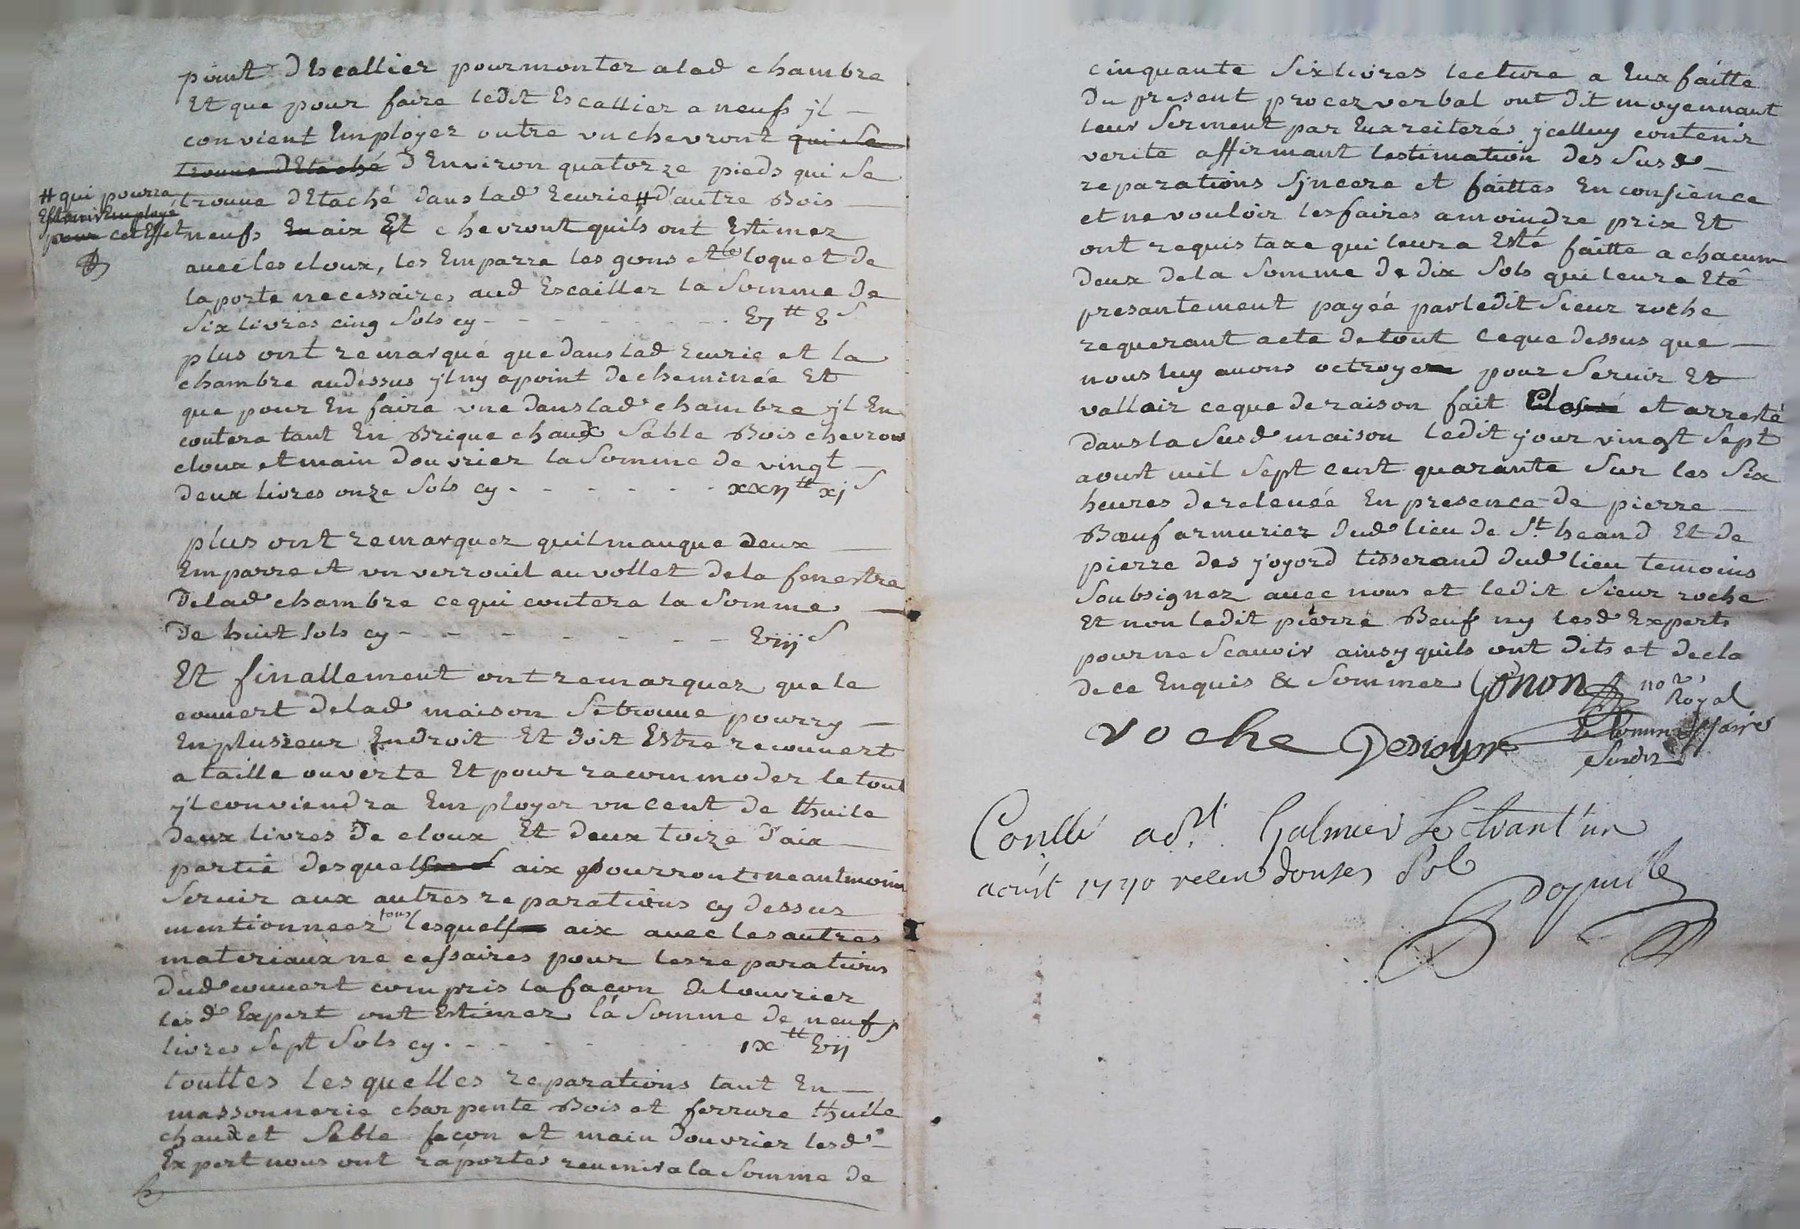 point d'Escallier pour monter a lad chambre
Et que pour faire ledit Escallier a neufs jl
convient Employer outre un chevront qui se
trouve d'Etaché d'Environ quatorze pieds qui se
# qui pourra
Estre Employé
pour cet Effet
trouve d'Etaché dans lad Ecurie # d'autre Bois
neufs En aix Et chevront quils ont Estimez
avec les cloux, les Emparre les gons et le loquet de
la porte necessaires aud Escaillier la Somme de
Six livres cinq Sols cy - - - - - - -
plus ont remarqué que dans lad Ecurie et la
chambre audessus jl ny a point de cheminée Et
que pour En faire une dans lad chambre jl En
coutera tant En Brique chaux Sable Bois chevron
cloux et main d'ouvrier la Somme de vingt
deux livres onze Sols cy - - - - - - xxij tt xj S
plus ont remarquez quil manque deux
Emparre et un verrouil au vollet de la fenestre
de lad chambre ce qui coutera la Somme
de huit Sols cy - - - - - - - - - - viij S
Et finallement ont remarquez que le
couvert de lad maison Se trouve pourry
En plusieur Endroit Et doit Estre recouvert
a taille ouverte Et pour racommoder le tout
jl conviendra Employer un cent de thuile
deux livres de cloux Et deux toize d'aix
partie desquels aix pourront neantmoins
Servir aux autres reparations cy dessus
mentionneez tous lesquels aix avec les autres
materiaux necessaires pour les reparations
dud couvert compris la façon de louvrier
lesd Expert ont Estimez la Somme de neuf
livres Sept Sols cy - - - - - - ix tt vij S
touttes lesquelles reparations tant En
massonnerie charpente Bois et ferrure thuile
chaux et Sable façon et main d'ouvrier lesd
Expert nous ont raportés revenir a la Somme de
cinquante Six livres lecture a Eux faitte
du present procez verbal ont dit moyennant
leur Serment par Eux reiteré jcelluy contenir
verité affirmant lestimation des Susd
reparations Sincere et faittes En consience
et ne vouloir les faires a moindre prix Et
ont requis taxe qui leur a Esté faitte a chacun
deux de la Somme de dix Sols qui leur a Eté
presantement payéé par ledit Sieur roche
requerant acte de tout ce que dessus que
nous luy avons octroye pour Servir Et
vallair ce que de raison fait Clos et arresté
dans la Susd maison ledit jour vingt Sept
aoust mil Sept cent quarante Sur les Six
heures de relevéé En presence de pierre
Bœuf armurier dud lieu de St heand Et de
pierre des joyord tisserand dud lieu temoins
Soubsignez avec nous et ledit Sieur roche
Et non ledit pierre Beuf ny lesd Experts
pour ne Scavoir ainsy quils ont dits et decla
de ce Enquis & Sommez Gonon no re
Royal
roche Desioyor
Commissaire
Susdit
Conllé a St Galmier le trant'un
aoust 1740 recu douses Sol